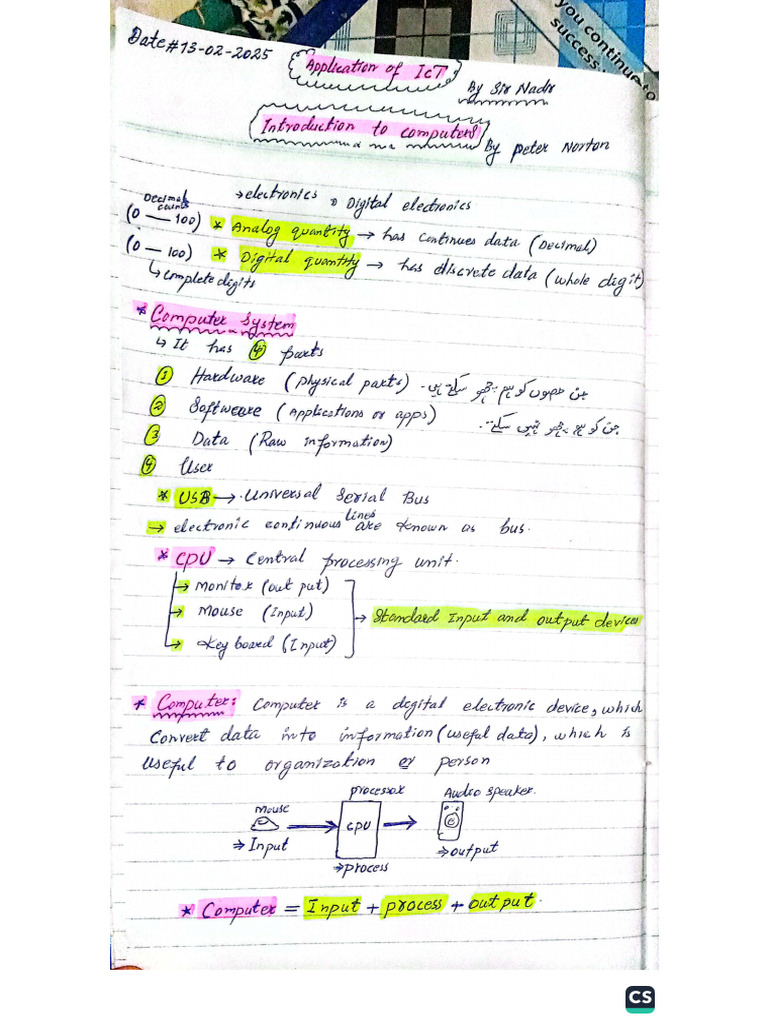 you continue to
success.
Date # 13-02-2025
Application of IcT
By Sir Nadir
Introduction to computers
By peter Norton
→ electronics → Digital electronics
Decimal counts
(0 — 100) * Analog quantity → has continues data (Decimal)
(0 — 100) * Digital quantity → has discrete data (whole digit)
↳ complete digits
* Computer System
↳ It has 4 parts
1 Hardware (physical parts) جن حصوں کو ہم چھو سکتے ہیں۔
2 Software (Applications or apps) جن کو ہم چھو نہیں سکتے۔
3 Data (Raw information)
4 User
* USB → Universal Serial Bus
→ electronic continuous lines are known as bus.
* CPU → Central processing unit.
→ Monitor (out put)
→ Mouse (Input)
→ Key board (Input)
→ Standard Input and output devices
* Computer: Computer is a degital electronic device, which
Convert data into information (useful data), which is
Useful to organization or person
processor
Audio speaker.
Mouse
CPU
⇒ Input
⇒ output
⇒ process
* Computer = Input + process + output.
CS